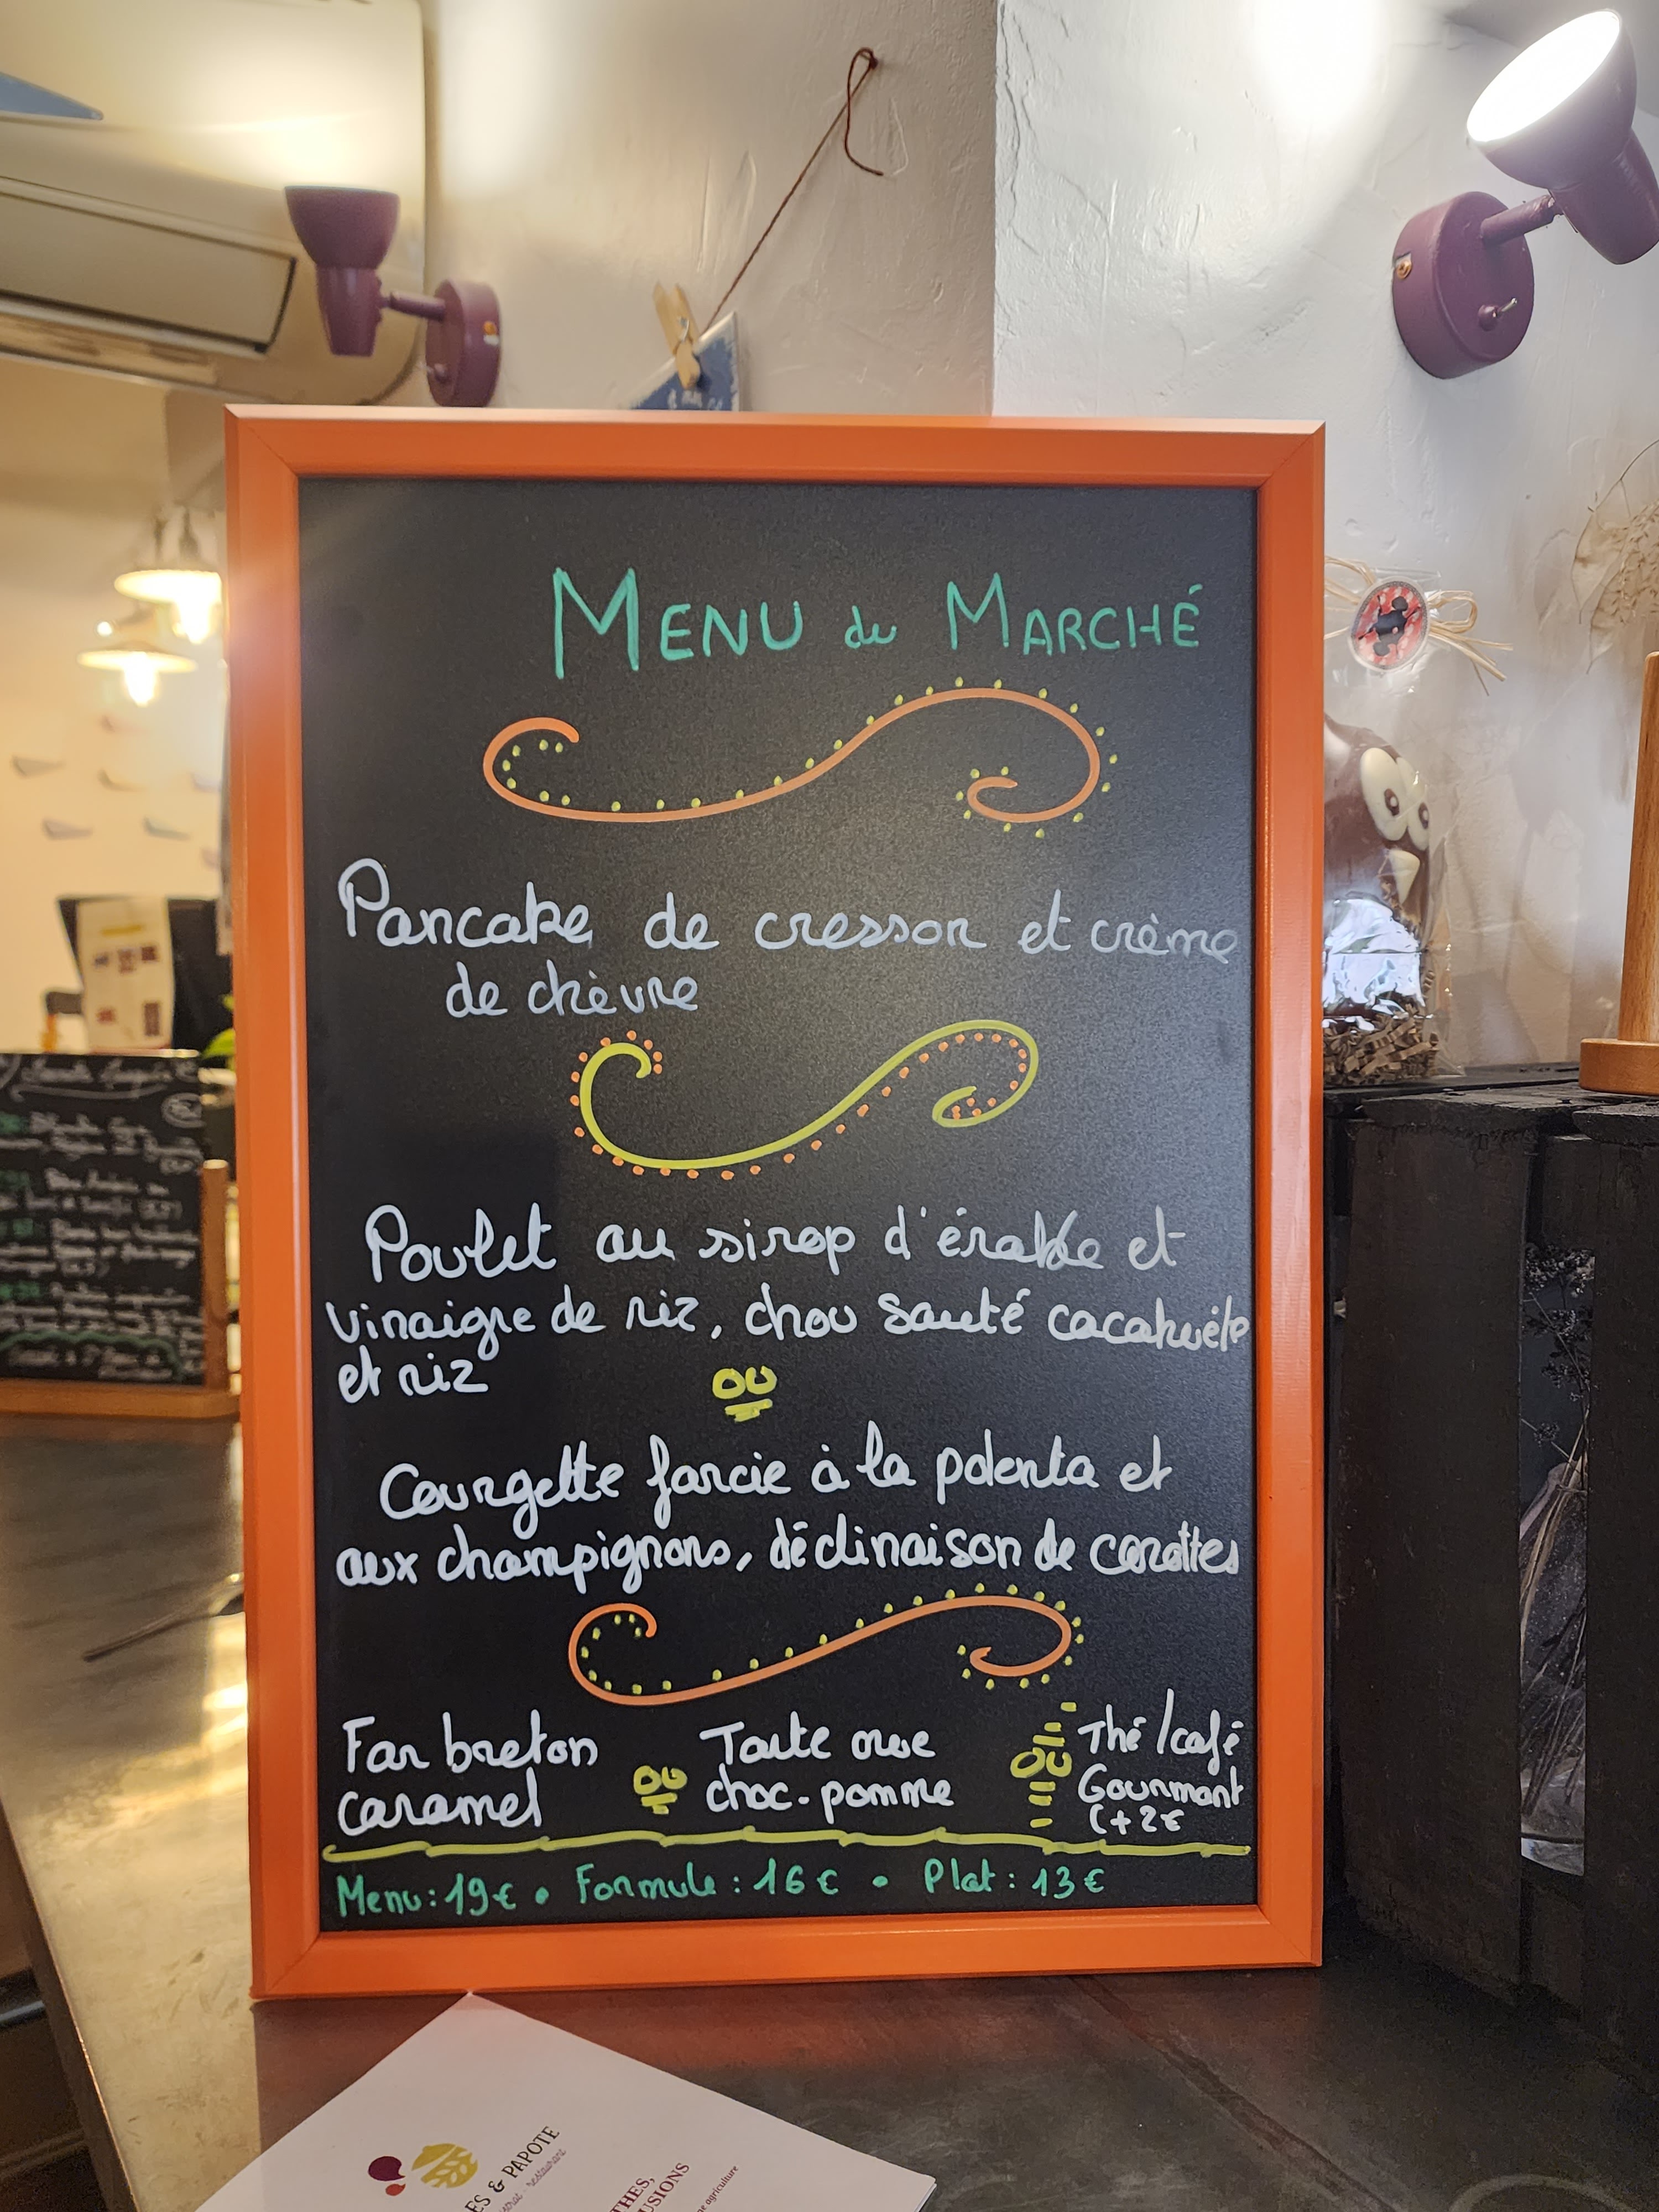 MENU du MARCHÉ
Pancake de cresson et crème
de chèvre
Poulet au sirop d'érable et
vinaigre de riz, chou sauté cacahuète
et riz
OU
Courgette farcie à la polenta et
aux champignons, déclinaison de carottes
Far breton
caramel
OU
Tarte
choc-pomme
OU
Thé/café
Gourmant
(+2€
Menu: 19€ • Formule: 16€ • Plat: 13€
ES & PAPOTE
restaurant
THES,
USIONS
agriculture